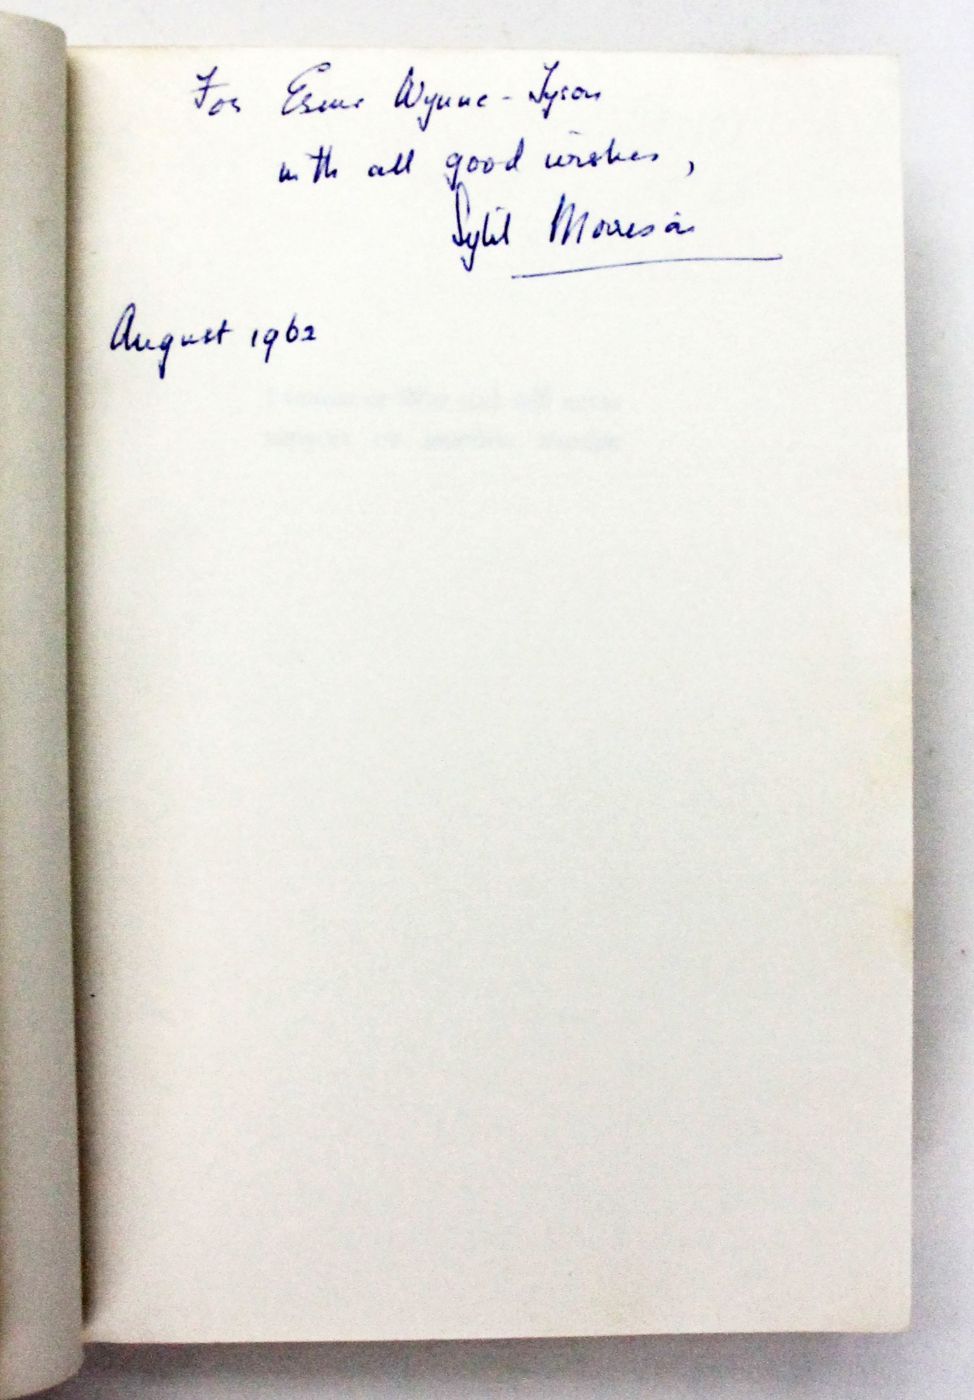 For Esme Wynne-Tyson
with all good wishes,
Sybil Morrison
August 1962